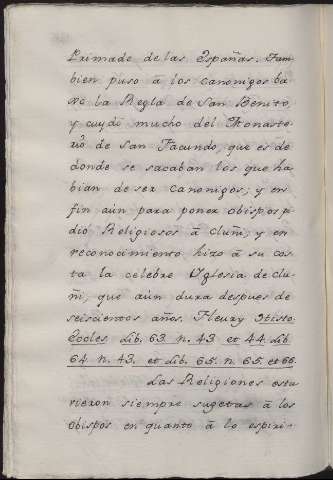 Primado de las Españas. Tam-
bien puso â los canonigos ba-
xo la Regla de San Benito,
y cuydó mucho del Monaste-
rio de San Facundo, que es de
donde se sacaban los que ha-
bian de ser canonigos; y en
fin aún para poner obispos pi-
dió Religiosos â Cluñi; y en
reconocimiento hizo â su cos-
ta la celebre Yglesia de Clu-
ñi, que aún dura despues de
seiscientos años. Fleury Histo.
Eccles lib. 63. n. 43. et 44. lib.
64. n. 43. et lib. 65. n. 65. et 66.
Las Religiones estu-
vieron siempre sugetas â los
obispos en quanto â lo espiri-